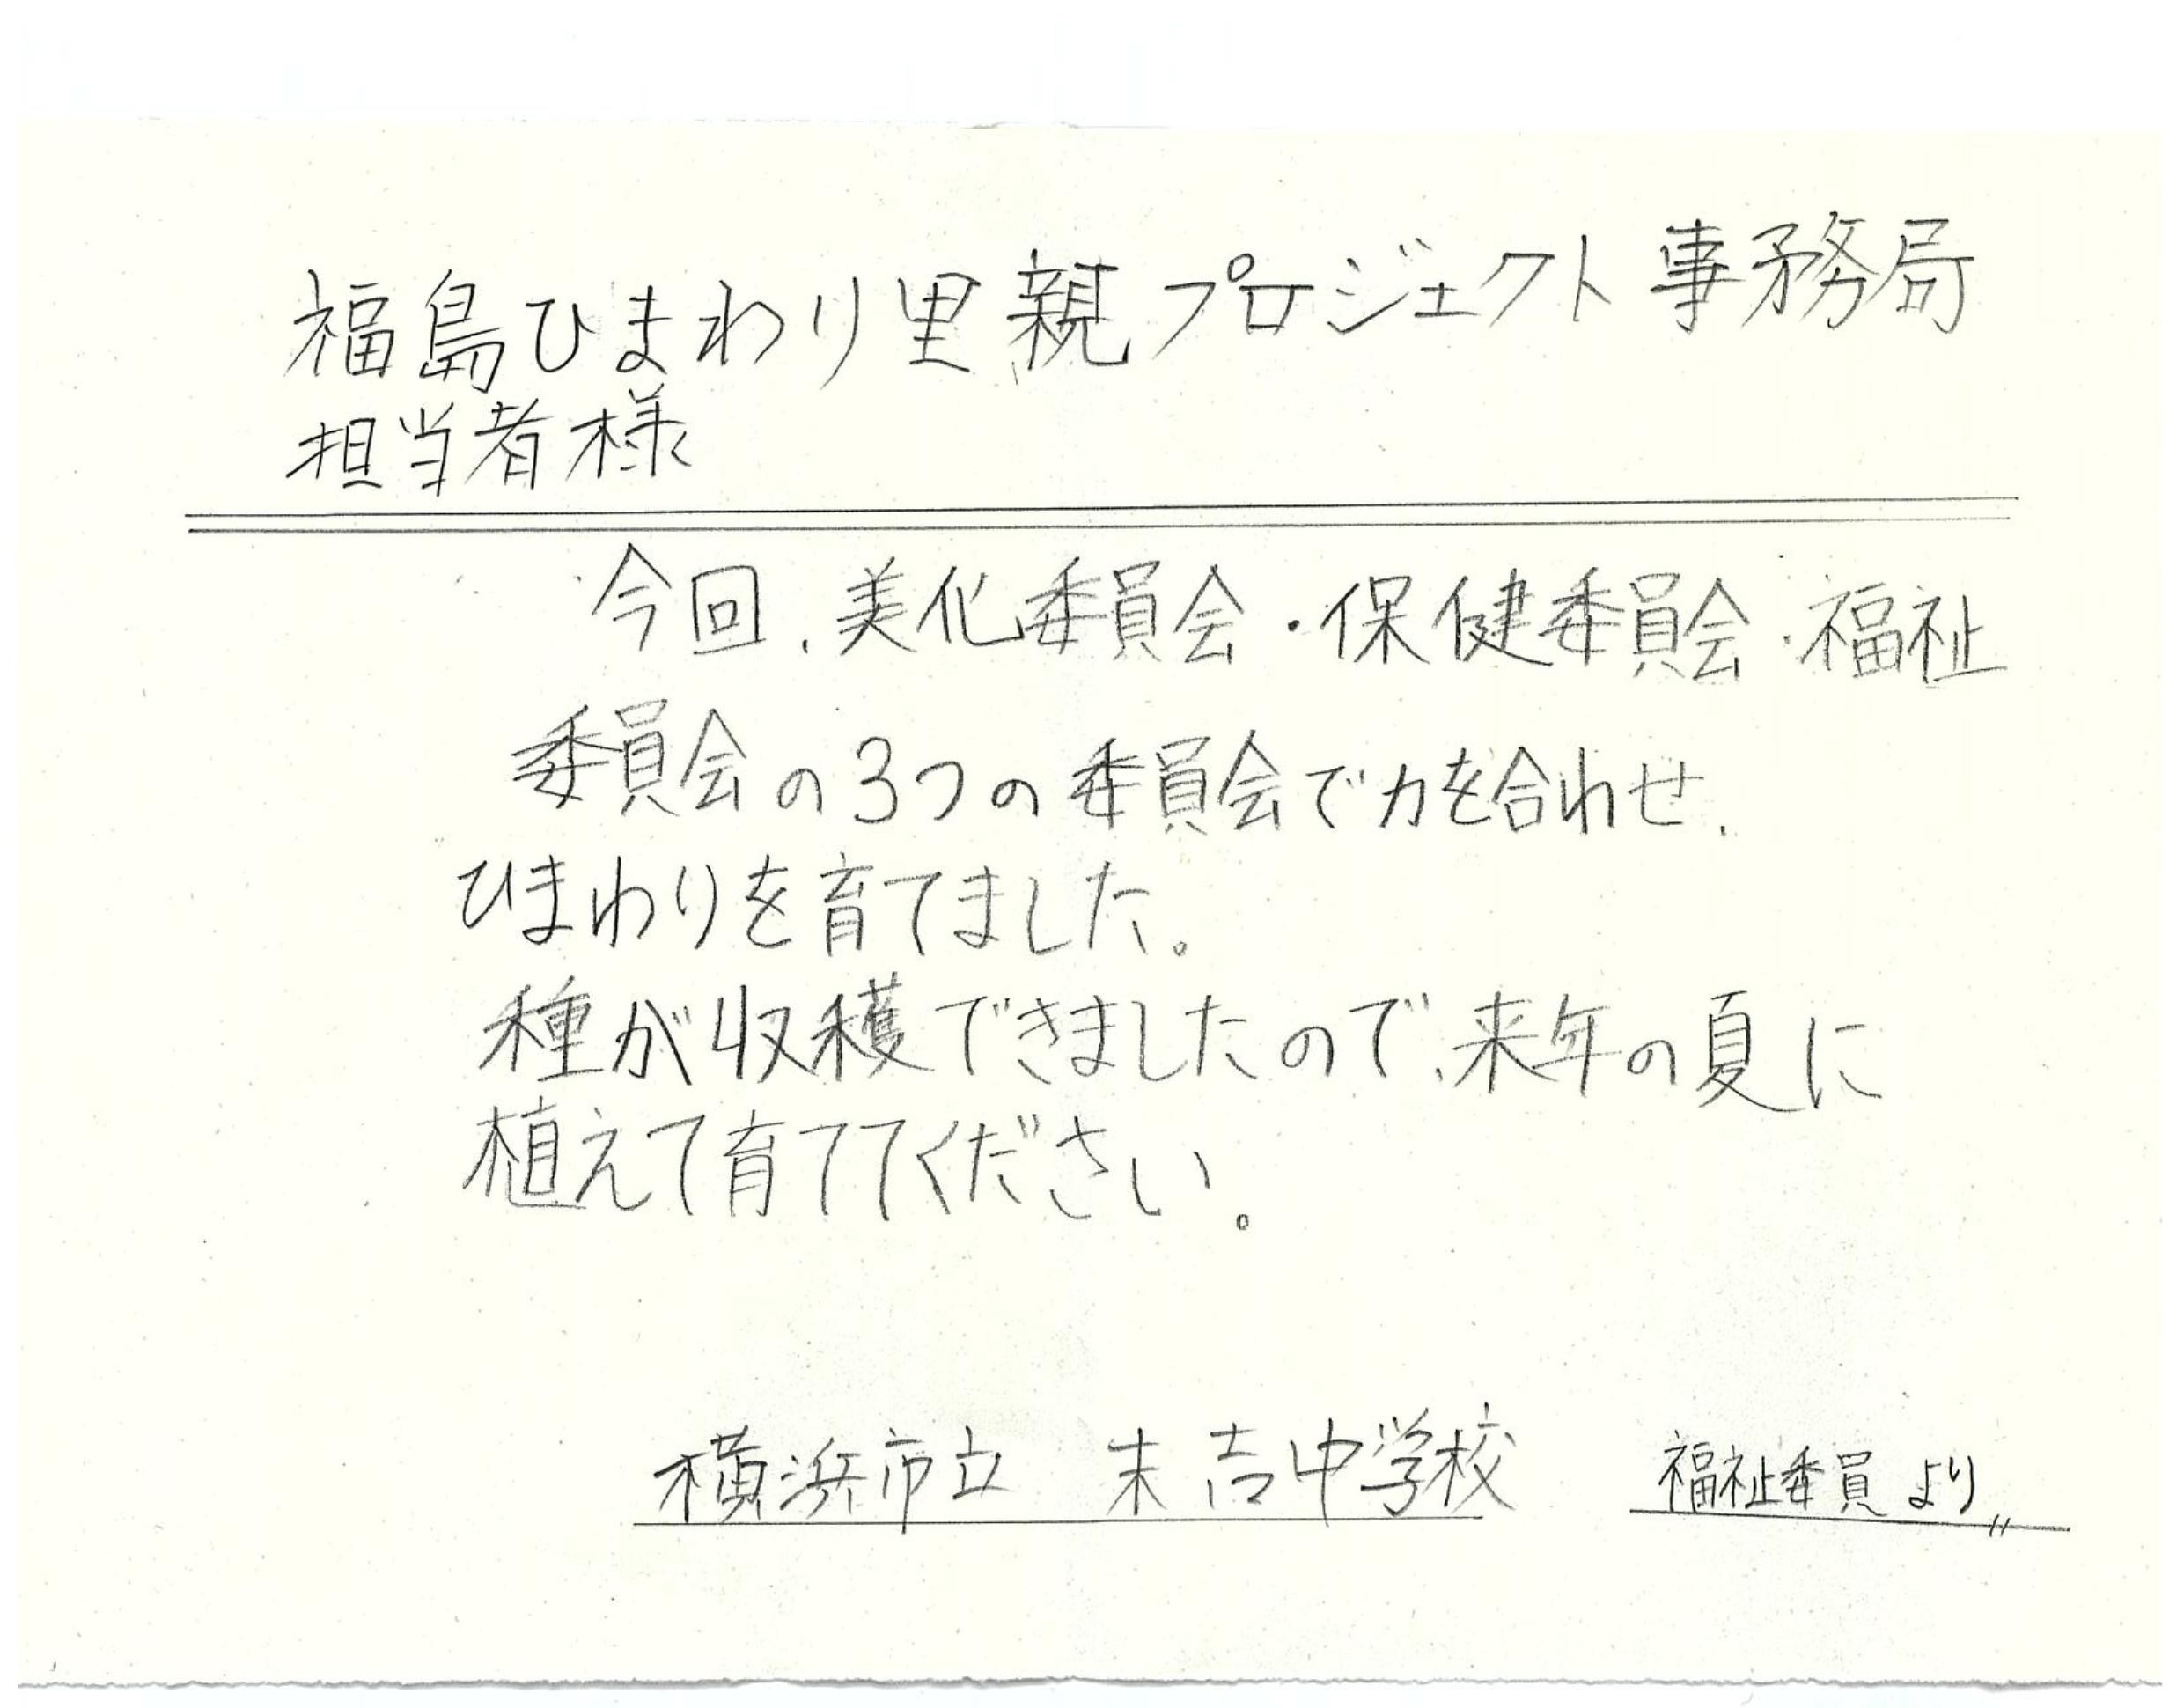 福島ひまわり里親プロジェクト事務局
担当者様
今回、美化委員会・保健委員会・福祉
委員会の3つの委員会で力を合わせ、
ひまわりを育てました。
種が収穫できましたので、来年の夏に
植えて育ててください。
横浜市立 末吉中学校 福祉委員より